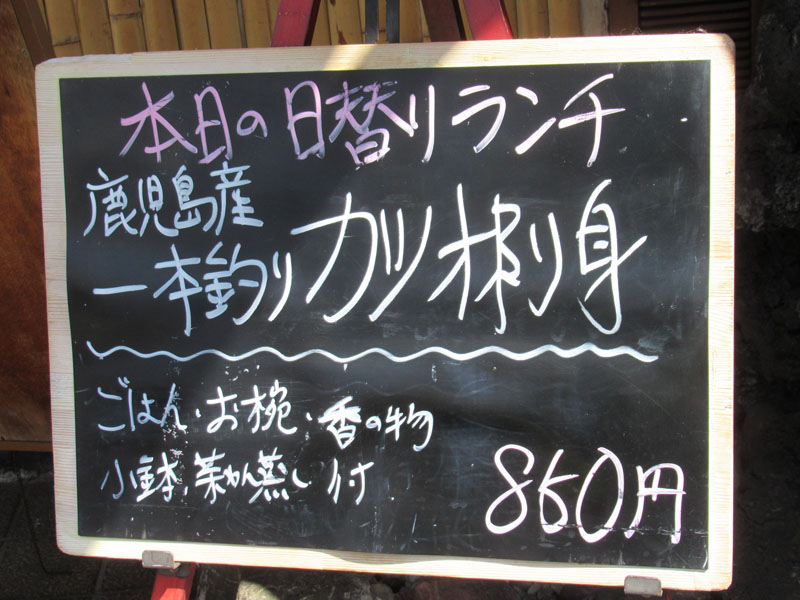 本日の日替りランチ
鹿児島産
一本釣りカツオ刺り身
ごはん・お椀・香の物
小鉢、茶わん蒸し付
850円